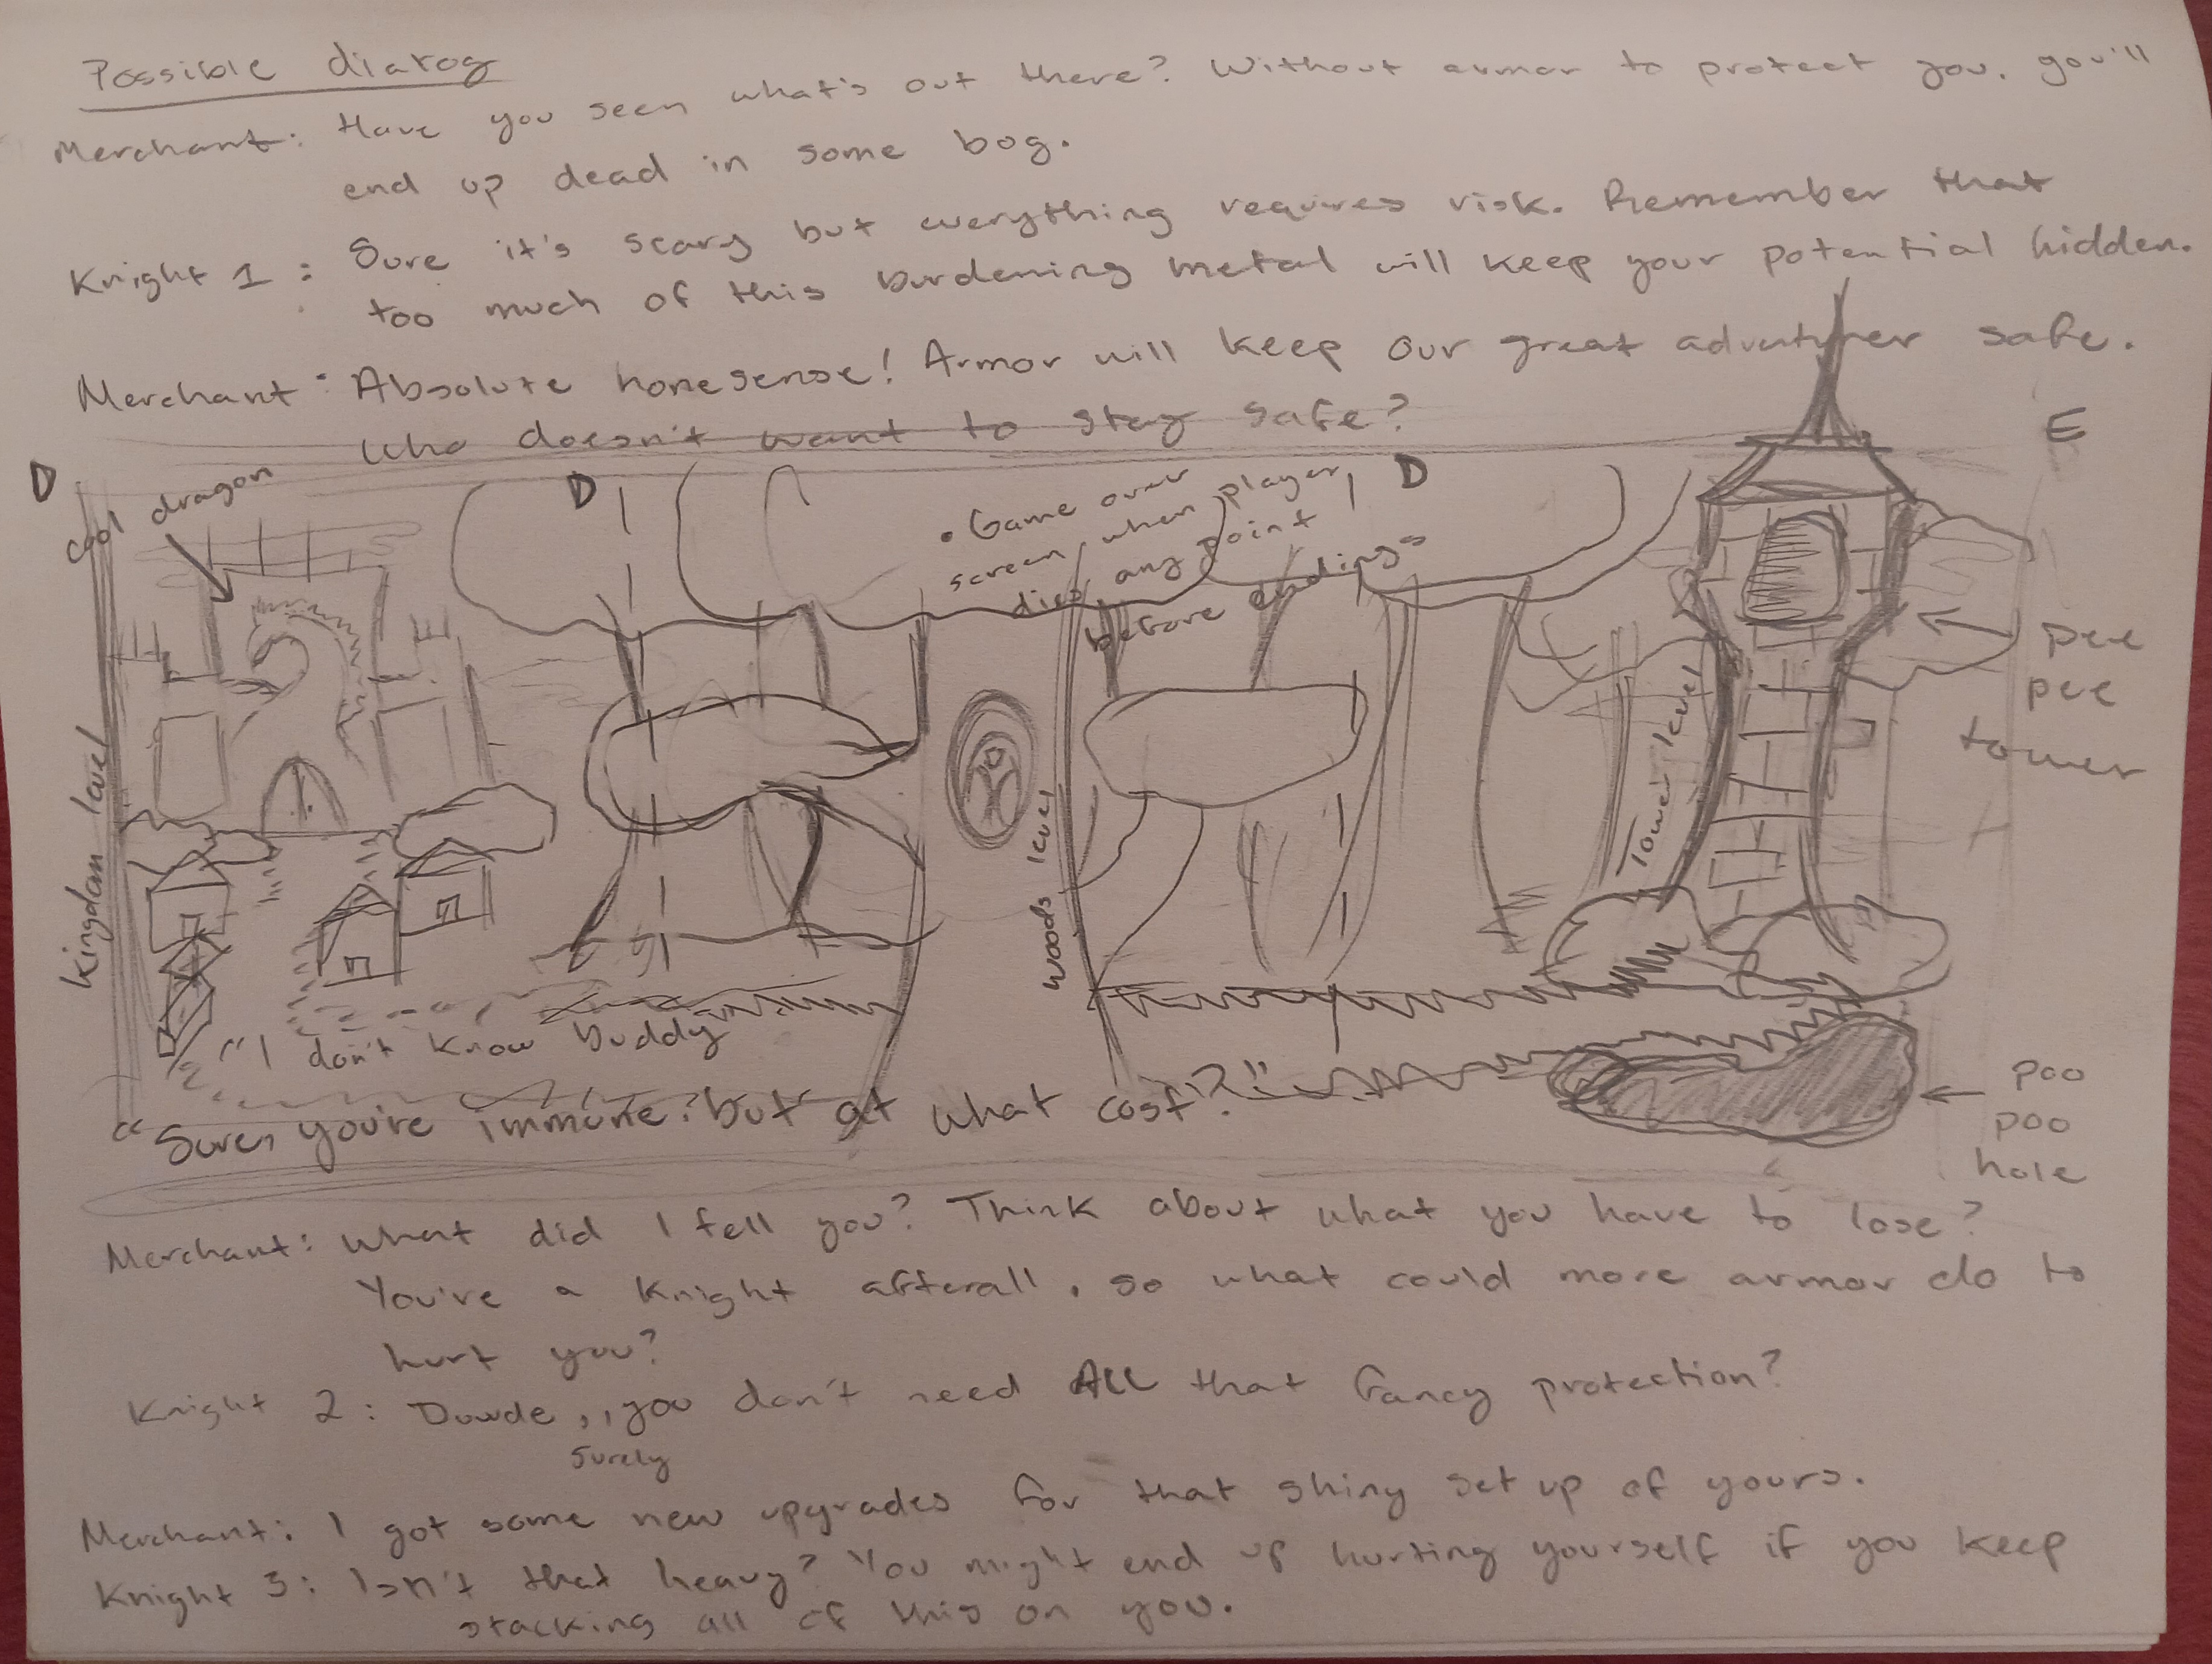 Possible dialog
Merchant: Have you seen what's out there? Without armor to protect you, you'll
end up dead in some bog.
Knight 1: Sure it's scary but everything requires risk. Remember that
too much of this burdening metal will keep your potential hidden.
Merchant: Absolute nonesense! Armor will keep our great adventurer safe.
Who doesn't want to stay safe?
D
cool dragon
D
• Game over
screen when player
dies any point
before endings
D
E
pee
pee
tower
Kingdom level
Woods level
Tower level
"I don't know buddy
"Sure, you're immune, but at what cost?!"
poo
poo
hole
Merchant: What did I tell you? Think about what you have to lose?
You're a Knight afterall, so what could more armor do to
hurt you?
Knight 2: Duwde,, you don't need ALL that fancy protection?
surely
Merchant: I got some new upgrades for that shiny set up of yours.
Knight 3: Isn't that heavy? You might end up hurting yourself if you keep
stacking all of this on you.